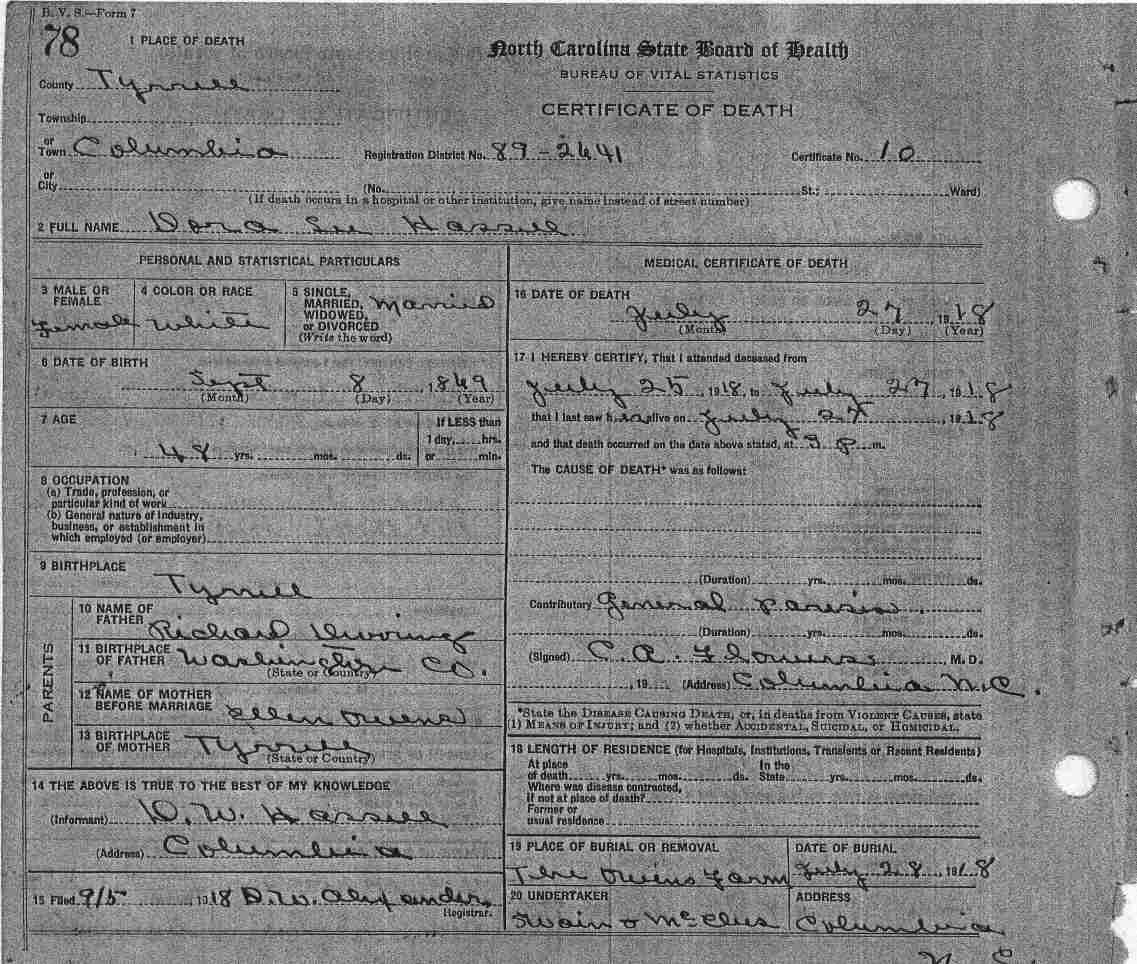 B. V. S.—Form 7
78
1 PLACE OF DEATH
North Carolina State Board of Health
BUREAU OF VITAL STATISTICS
CERTIFICATE OF DEATH
County Tyrrell
Township
or Town Columbia Registration District No. 89-2641 Certificate No. 10
or City (No. St.; Ward)
(If death occurs in a hospital or other institution, give name instead of street number)
2 FULL NAME Dora Lee Hassell
PERSONAL AND STATISTICAL PARTICULARS
3 MALE OR FEMALE female
4 COLOR OR RACE White
5 SINGLE, MARRIED, WIDOWED, or DIVORCED (Write the word) Married
6 DATE OF BIRTH
Sept 8, 1869
(Month) (Day) (Year)
7 AGE
48 yrs. mos. ds.
If LESS than 1 day, hrs. or min.
8 OCCUPATION
(a) Trade, profession, or
particular kind of work
(b) General nature of industry,
business, or establishment in
which employed (or employer)
9 BIRTHPLACE
Tyrrell
PARENTS
10 NAME OF FATHER Richard
11 BIRTHPLACE OF FATHER Washington Co.
(State or Country)
12 NAME OF MOTHER BEFORE MARRIAGE Ellen Owens
13 BIRTHPLACE OF MOTHER Tyrrell
(State or Country)
14 THE ABOVE IS TRUE TO THE BEST OF MY KNOWLEDGE
(Informant) D. W. Hassell
(Address) Columbia
15 Filed 9/5 1918 D. W. Alexander,
Registrar.
MEDICAL CERTIFICATE OF DEATH
16 DATE OF DEATH
July 27, 1918
(Month) (Day) (Year)
17 I HEREBY CERTIFY, That I attended deceased from
July 25, 1918, to July 27, 1918
that I last saw her alive on July 27, 1918
and that death occurred on the date above stated, at 9 P m.
The CAUSE OF DEATH* was as follows:
(Duration) yrs. mos. ds.
Contributory General paresis.
(Duration) yrs. mos. ds.
(Signed) C. A. Flowers, M. D.
, 19 (Address) Columbia N.C.
*State the DISEASE CAUSING DEATH, or, in deaths from VIOLENT CAUSES, state
(1) MEANS OF INJURY; and (2) whether ACCIDENTAL, SUICIDAL, or HOMICIDAL.
18 LENGTH OF RESIDENCE (for Hospitals, Institutions, Transients or Recent Residents)
At place of death yrs. mos. ds. In the State yrs. mos. ds.
Where was disease contracted,
if not at place of death?
Former or
usual residence
19 PLACE OF BURIAL OR REMOVAL
The Owens Farm
DATE OF BURIAL
July 28, 1918
20 UNDERTAKER
Swain & McClees
ADDRESS
Columbia
N. C.